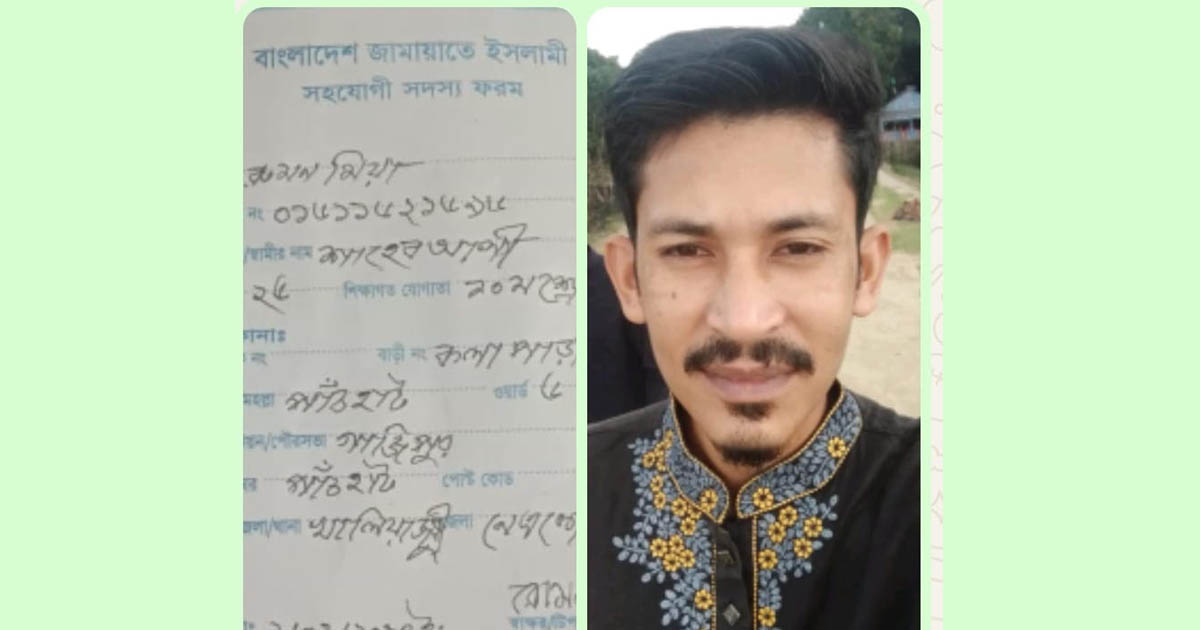 বাংলাদেশ জামায়াতে ইসলামী
সহযোগী সদস্য ফরম
রুমন মিয়া
নং ০১৫১১৫২১৫৯৫
/স্বামীর নাম সাহেব আলী
২৫ শিক্ষাগত যোগ্যতা ১০ম শ্রে
কানাঃ
নং বাড়ী নং কলা পাড়া
মহল্লা পাঁচহাট ওয়ার্ড ৫
য়ন/পৌরসভা গাজিপুর
পাঁচহাট পোষ্ট কোড
জেলা/থানা খালিয়াজুরী জেলা নেত্রকো
রোমা
স্বাক্ষর/টিপ